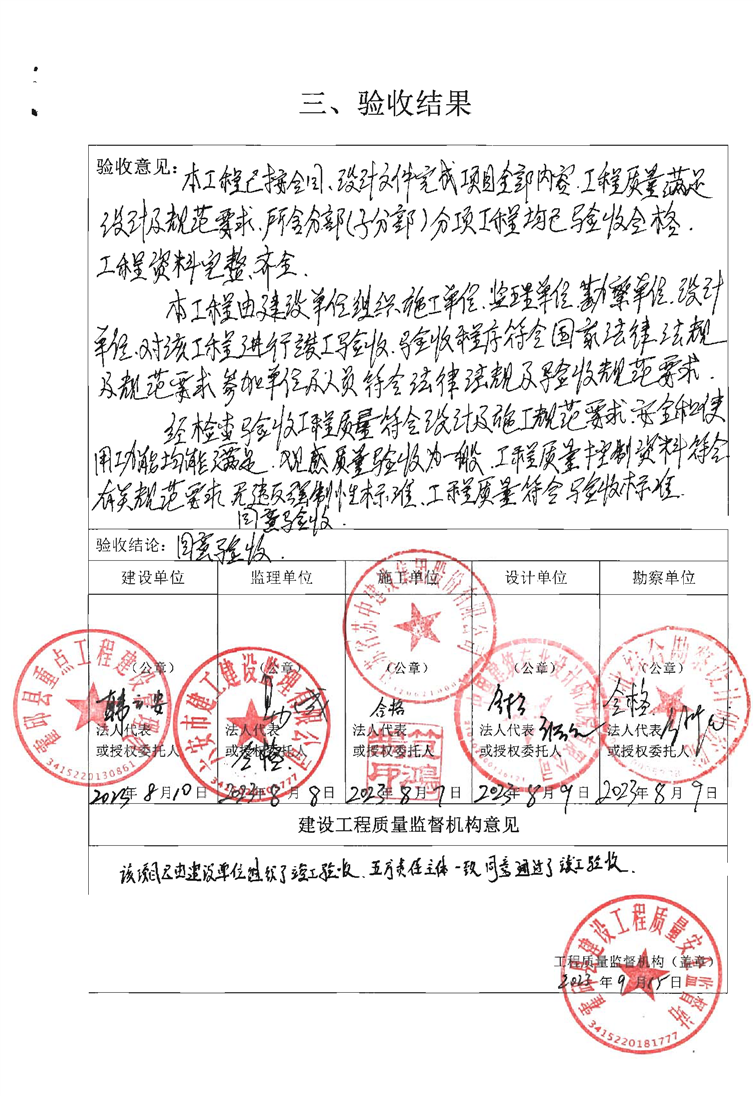 三、验收结果
验收意见：本工程已按合同、设计文件完成项目全部内容.工程质量满足
设计及规范要求.所含分部(子分部)分项工程均已验收合格.
工程资料完整.齐全.
本工程由建设单位组织.施工单位.监理单位.勘察单位.设计
单位.对该工程进行竣工验收.验收程序符合国家法律法规
及规范要求.参加单位及人员符合法律法规及验收规范要求.
经检查验收工程质量符合设计及施工规范要求.安全和使
用功能均能满足.观感质量验收为一般.工程质量控制资料符合
有关规范要求.无违反强制性标准.工程质量符合验收标准.
同意验收.
验收结论：同意验收.
建设单位 监理单位 施工单位 设计单位 勘察单位
（公章） （公章） （公章） （公章） （公章）
合格 合格 合格
法人代表 法人代表 法人代表 法人代表 法人代表
或授权委托人 或授权委托人 或授权委托人 或授权委托人 或授权委托人
合格
2023年8月10日 2023年8月8日 2023年8月7日 2023年8月9日 2023年8月9日
霍邱县重点工程建设管理
3415220130861
六安市建工建设监理有限公司
建设工程质量监督机构意见
该项目已由建设单位组织了竣工验收.五方责任主体一致同意通过了竣工验收.
工程质量监督机构（盖章）
2023年9月15日
霍邱县建设工程质量安全监督站
3415220181777